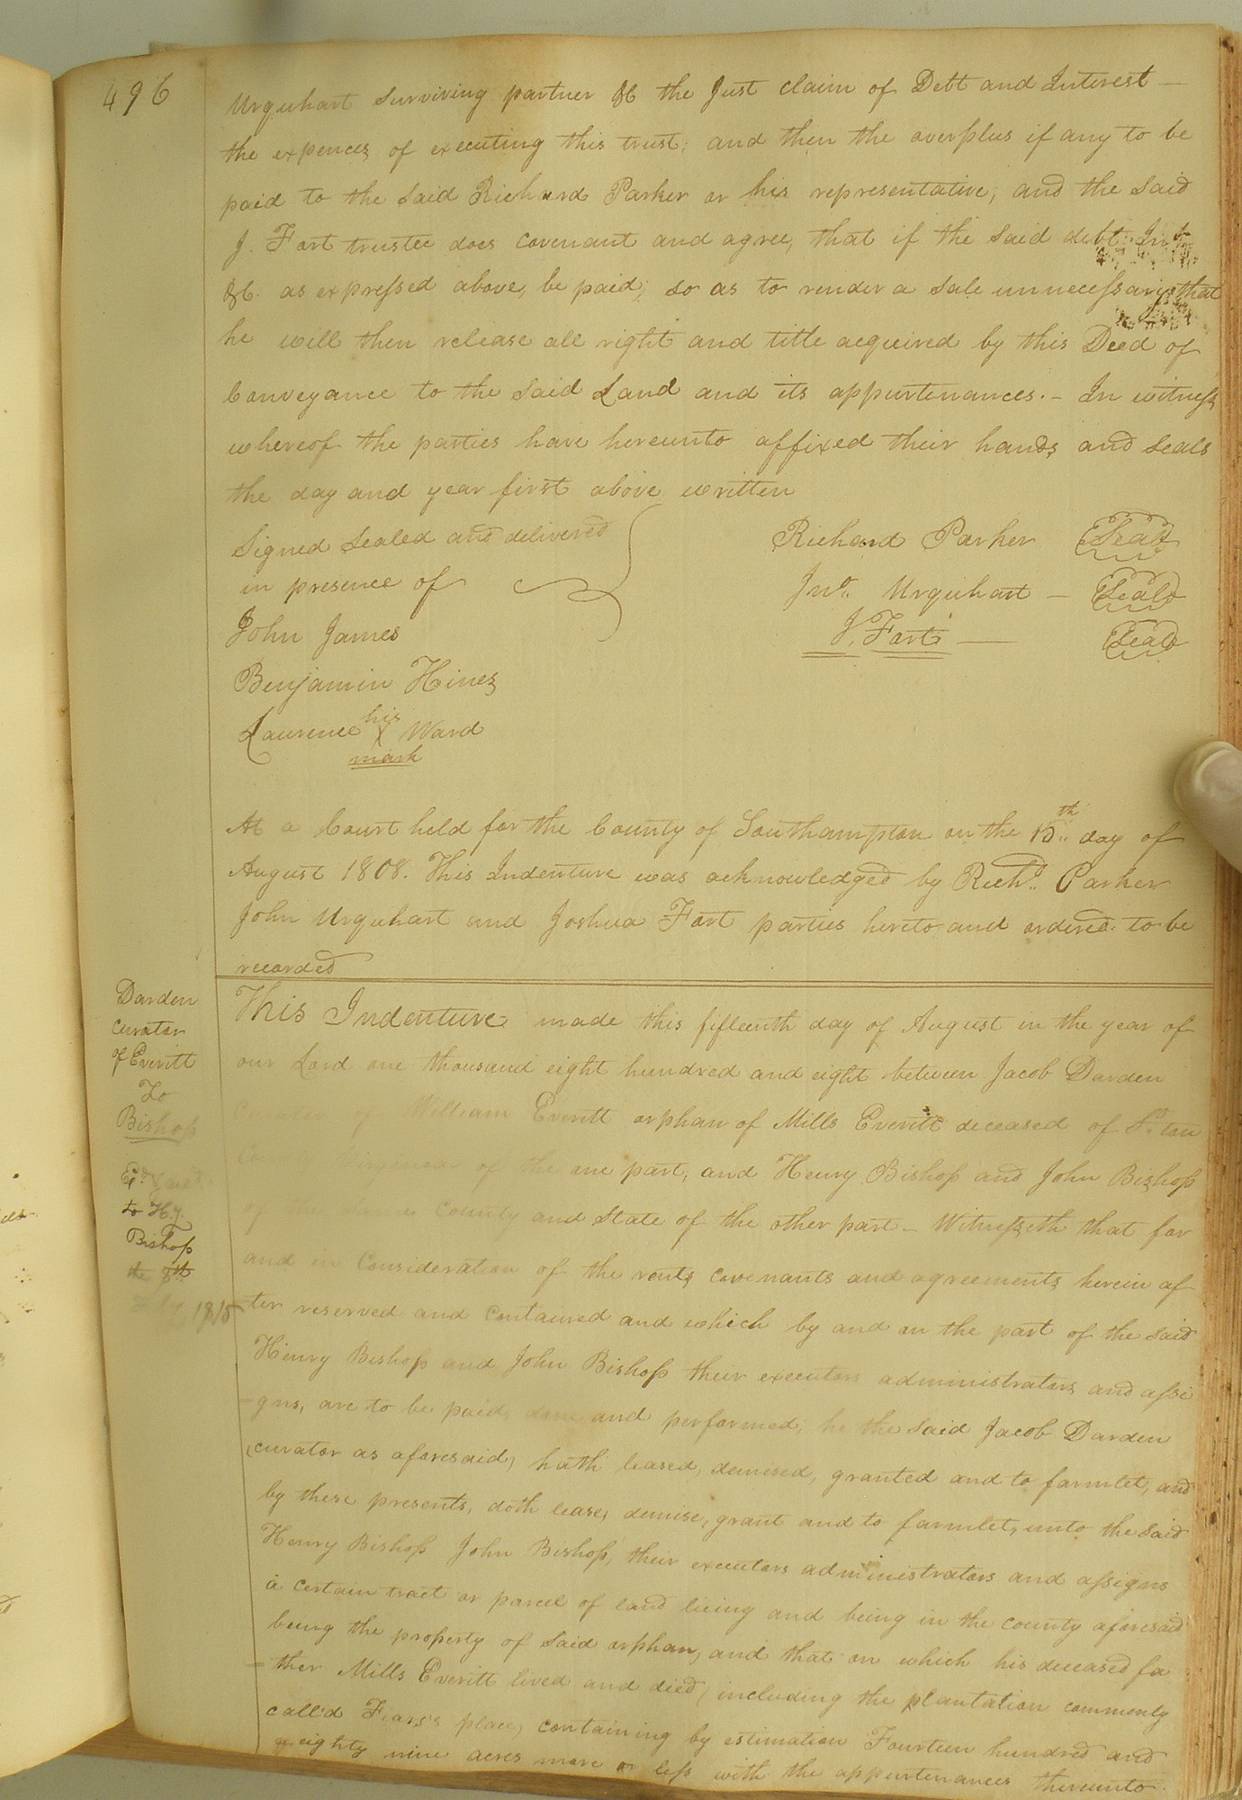 496
Urquhart surviving partner &C the Just claim of Debt and Interest —
the expences of executing this trust; and then the overplus if any to be
paid to the said Richard Parker or his representative, and the said
J. Fort trustee does covenant and agree, that if the said debt Int
&C. as expressed above, be paid, so as to render a sale unnecessary, that
he will then release all right and title acquired by this Deed of
Conveyance to the said Land and its appurtenances. — In witness
whereof the parties have hereunto affixed their hands and seals
the day and year first above written
Signed Sealed and delivered
in presence of
Richard Parker Seal
Jno. Urquhart — Seal
J. Fort — Seal
John James
Benjamin Hines
Laurence his X mark Ward
At a Court held for the County of Southampton on the 15th day of
August 1808. This Indenture was acknowledged by Richd. Parker
John Urquhart and Joshua Fort parties hereto and ordered to be
recorded
Darden
curator
of Everitt
To
Bishop
to Hy.
Bishop
the 8th
1815
This Indenture made this fifteenth day of August in the year of
our Lord one thousand eight hundred and eight between Jacob Darden
Curator of William Everitt orphan of Mills Everitt deceased of Soton
County Virginia of the one part, and Henry Bishop and John Bishop
of the same County and State of the other part — Witnesseth that for
and in Consideration of the rents covenants and agreements herein af
ter reserved and contained and which by and on the part of the said
Henry Bishop and John Bishop their executors administrators and assi
-gns, are to be paid, done and performed, he the said Jacob Darden
curator as aforesaid, hath leased, demised, granted and to farm let, and
by these presents, doth lease, demise, grant and to farm let, unto the said
Henry Bishop John Bishop, their executors administrators and assigns
a certain tract or parcel of land lieing and being in the county aforesaid
being the property of said orphan, and that on which his deceased fa
-ther Mills Everitt lived and died, including the plantation commonly
call'd place, containing by estimation Fourteen hundred and
eighty nine acres more or less with the appurtenances thereunto